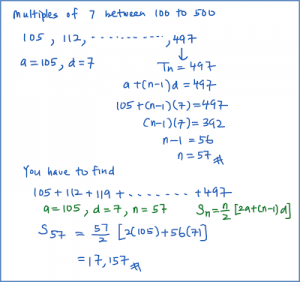 Multiples of 7 between 100 to 500
105, 112, ----------, 497
↓
a=105, d=7
Tn = 497
a+(n-1)d = 497
105+(n-1)(7)=497
(n-1)(7)=392
n-1 = 56
n=57#
You have to find
105+112+119+-------+497
a=105, d=7, n=57 Sn=n/2[2a+(n-1)d]
S57 = 57/2 [2(105)+56(7)]
=17,157#